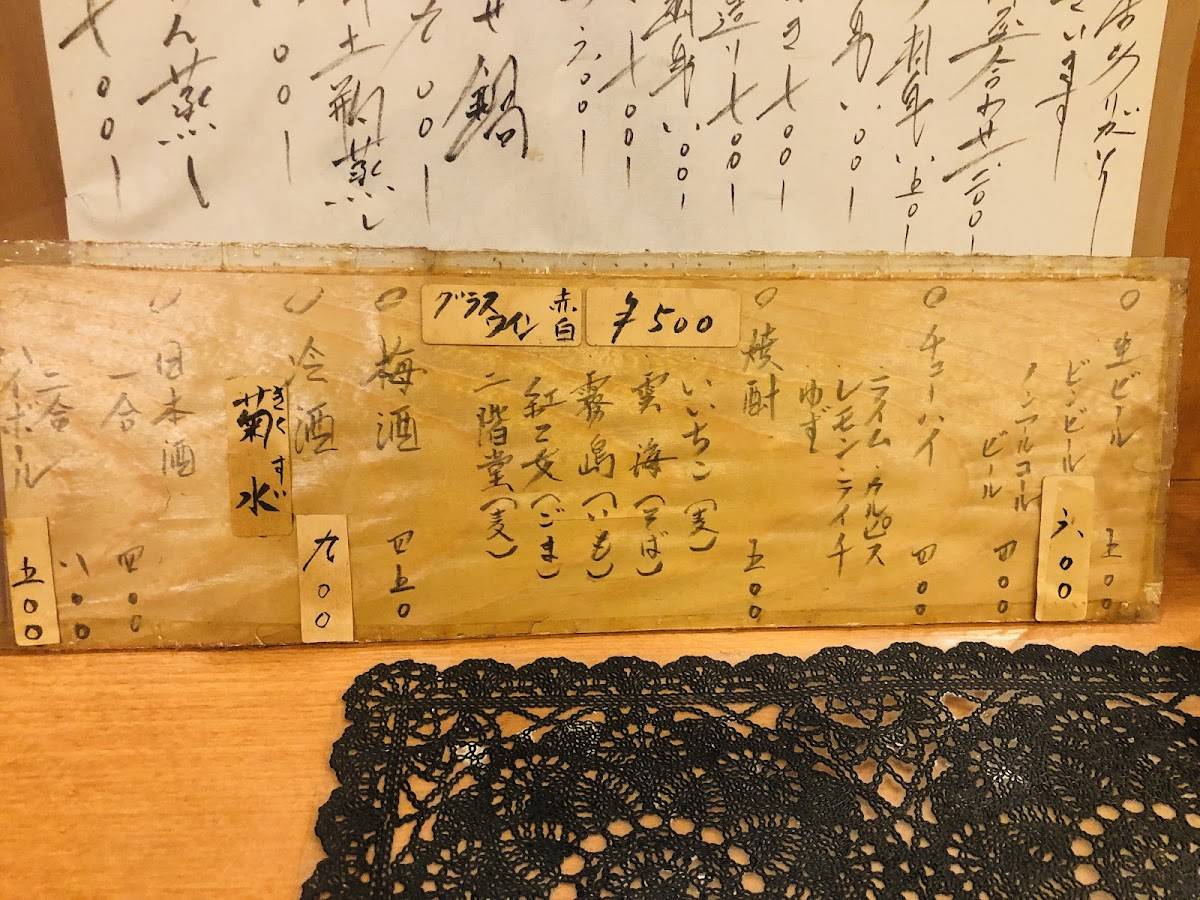 ています
盛合わせ二、二〇〇ー
刺身 一、五〇ー
七〇〇ー
造り 七〇〇ー
刺身 一、〇〇ー
七〇〇ー
せ鍋
土瓶蒸し
ん蒸し
七〇〇ー
○生ビール 五〇〇
ビンビール 六〇〇
ノンアルコール
ビール 四〇〇
○チューハイ 四〇〇
ライム・カルピス
レモン・ライチ
ゆず
○焼酎 五〇〇
いいちこ(麦)
雲海(そば)
霧島(いも)
紅乙女(ごま)
二階堂(麦)
グラスワイン 赤白 ¥500
○梅酒 四五〇
○冷酒 九〇〇
菊水 きくすい
○日本酒
一合 四〇〇
二合 八〇〇
ハイボール 五〇〇